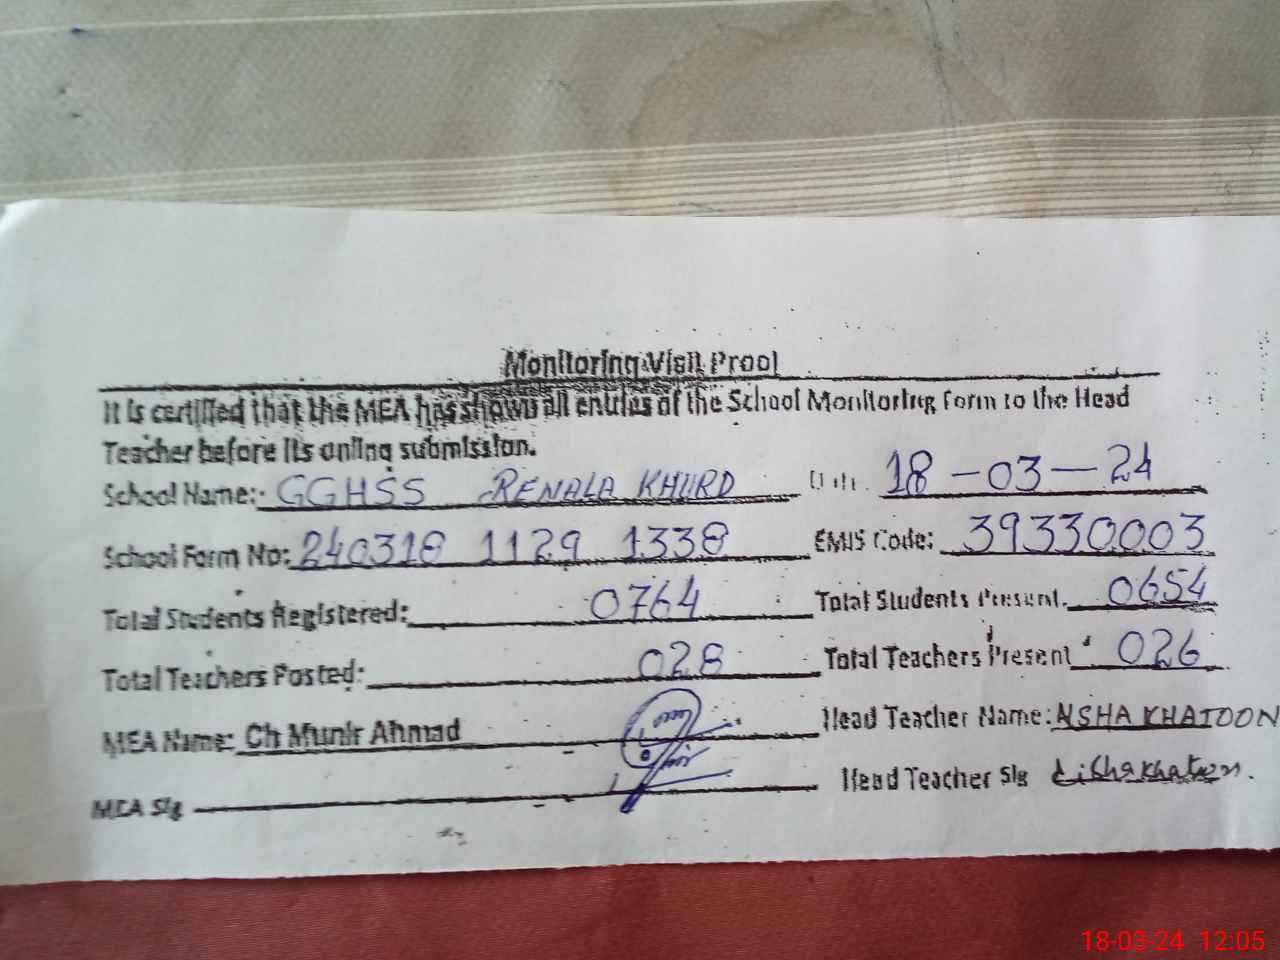 Monitoring Visit Proof
It is certified that the MEA has shown all entries of the School Monitoring Form to the Head
Teacher before its online submission.
School Name: GGHSS RENALA KHURD Date 18-03-24
School Form No: 240318 1129 1338 EMIS Code: 39330003
Total Students Registered: 0764 Total Students Present 0654
Total Teachers Posted: 028 Total Teachers Present 026
MEA Name: Ch Munir Ahmad Head Teacher Name: AISHA KHATOON
MEA Sig Head Teacher Sig Aisha Khatoon.
18-03-24 12:05